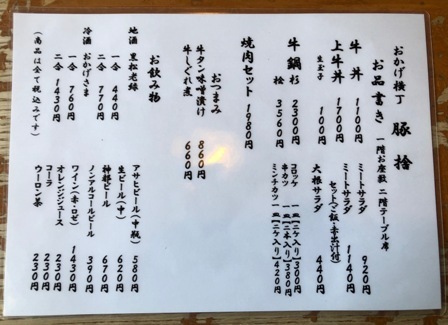 おかげ横丁 豚捨
お品書き 一階お座敷 二階テーブル席
牛丼 1100円
上牛丼 1700円
生玉子 100円
牛鍋 杉 2300円
松 3560円
焼肉セット 1980円
おつまみ
牛タン味噌漬け 860円
牛しぐれ煮 660円
ミートサラダ 920円
ミートサラダ
セット(ご飯・赤出汁付) 1140円
大根サラダ 440円
コロッケ 一皿【二ケ入り】300円
串カツ 一皿【二本入り】380円
ミンチカツ 一皿【二ケ入り】420円
お飲み物
地酒 黒松老緑
一合 440円
二合 770円
冷酒 おかげさま
一合 760円
二合 1430円
(商品は全て税込みです)
アサヒビール(中瓶) 580円
生ビール(中) 620円
神都ビール 670円
ノンアルコールビール 390円
ワイン(赤・ロゼ) 1430円
オレンジジュース 230円
コーラ 230円
ウーロン茶 230円